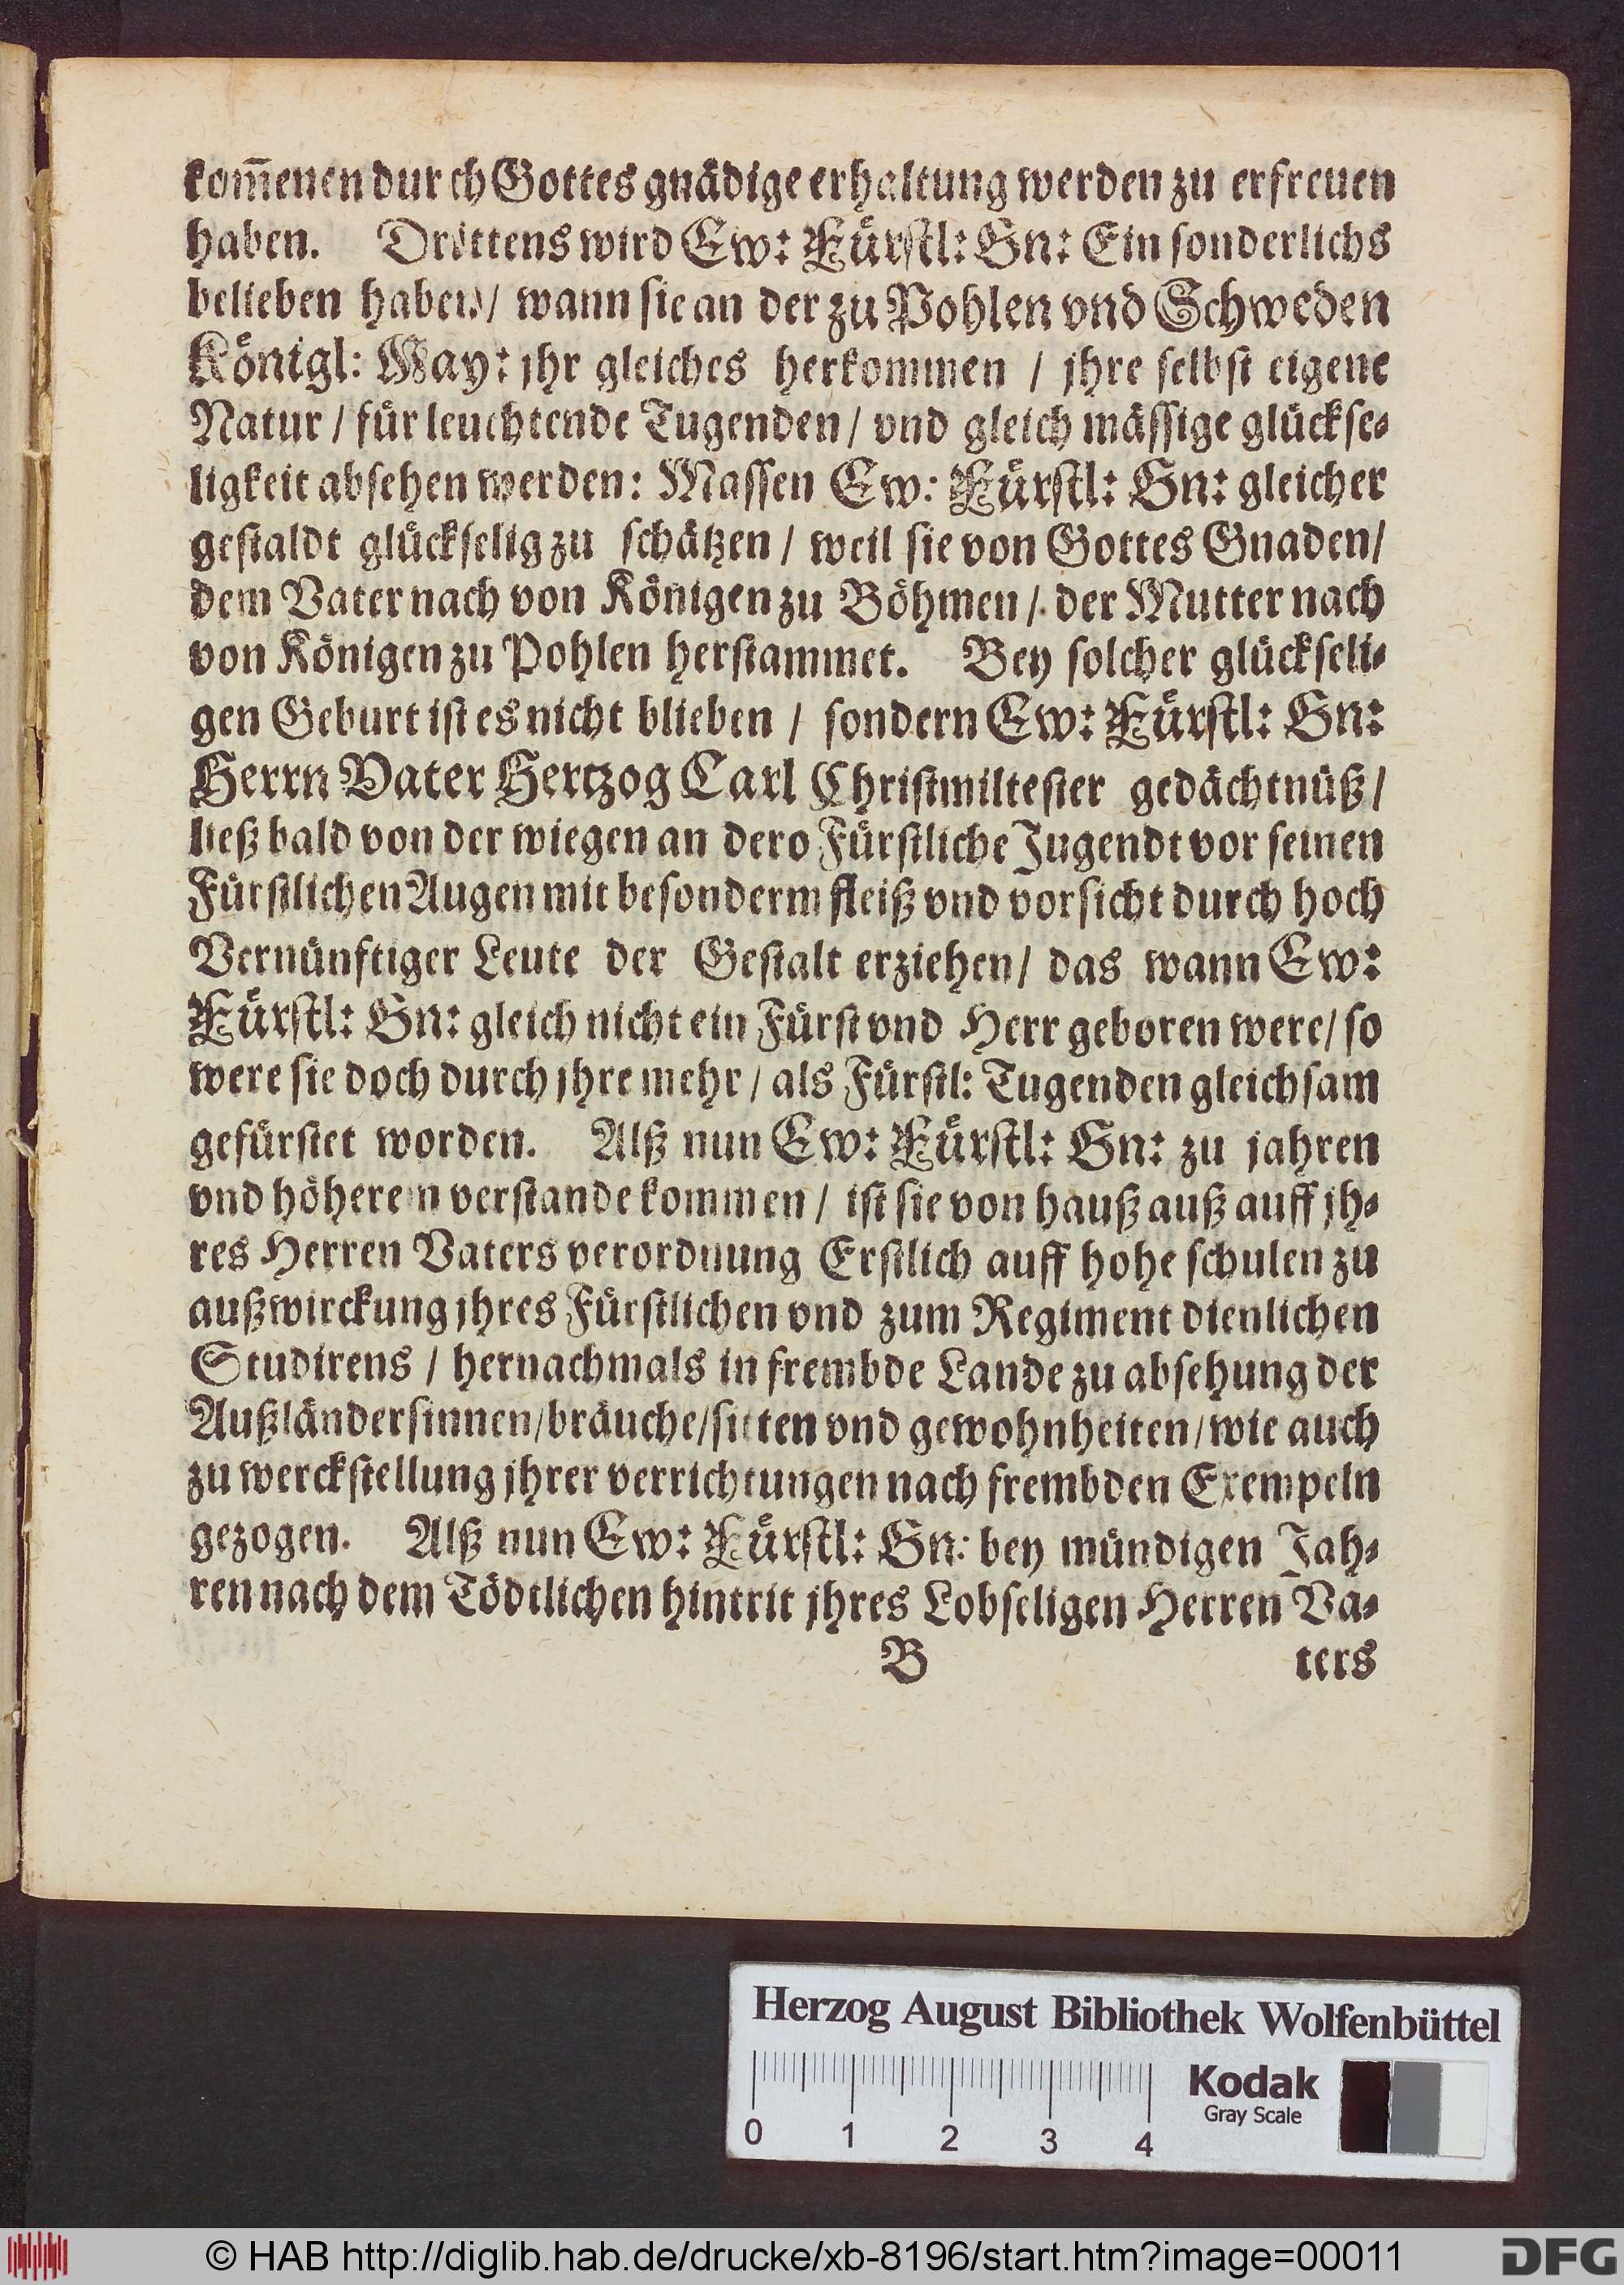 kom̅enen durch Gottes gnädige erhaltung werden zu erfreuen
haben. Drittens wird Ew: Fürstl: Gn: Ein sonderlichs
belieben haben/ wann sie an der zu Pohlen vnd Schweden
Königl: May: jhr gleiches herkommen / jhre selbst eigene
Natur / für leuchtende Tugenden / vnd gleich mässige glückse-
ligkeit absehen werden: Massen Ew: Fürstl: Gn: gleicher
gestaldt glückselig zu schätzen / weil sie von Gottes Gnaden/
dem Vater nach von Königen zu Böhmen / der Mutter nach
von Königen zu Pohlen herstammet. Bey solcher glückseli-
gen Geburt ist es nicht blieben / sondern Ew: Fürstl: Gn:
Herrn Vater Hertzog Carl Christmiltester gedächtnüß /
ließ bald von der wiegen an dero Fürstliche Jugendt vor seinen
Fürstlichen Augen mit besonderm fleiß vnd vorsicht durch hoch
Vernünftiger Leute der Gestalt erziehen/ das wann Ew:
Fürstl: Gn: gleich nicht ein Fürst vnd Herr geboren were/ so
were sie doch durch jhre mehr / als Fürstl: Tugenden gleichsam
gefürstet worden. Alß nun Ew: Fürstl: Gn: zu jahren
vnd höherem verstande kommen / ist sie von hauß auß auff jh-
res Herren Vaters verordnung Erstlich auff hohe schulen zu
außwirckung jhres Fürstlichen vnd zum Regiment dienlichen
Studirens / hernachmals in frembde Lande zu absehung der
Außländer sinnen/bräuche/sitten vnd gewohnheiten/wie auch
zu werckstellung jhrer verrichtungen nach frembden Exempeln
gezogen. Alß nun Ew: Fürstl: Gn: bey mündigen Jah-
ren nach dem Tödtlichen hintrit jhres Lobseligen Herren Va-
B ters
Herzog August Bibliothek Wolfenbüttel
0 1 2 3 4
Kodak
Gray Scale
© HAB http://diglib.hab.de/drucke/xb-8196/start.htm?image=00011
DFG